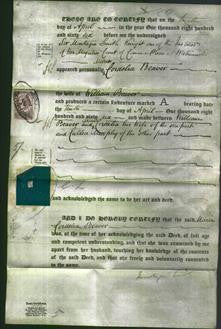 THESE ARE TO CERTIFY that on the
day of April in the year One thousand eight hundred
and sixty six before me the undersigned
Sir Montague Smith Knight one of the Justices
of Her Majesty's Court of Common Pleas at Westminster
appeared personally Cordelia Beaver
the wife of William Beaver
and produced a certain Indenture marked A bearing
date the day of April One thousand
eight hundred and sixty six and made between William
Beaver and Cordelia his wife of the one part
and of the other part
and acknowledged the same to be her act and deed.
AND I DO HEREBY CERTIFY that the said
Cordelia Beaver
was, at the time of her acknowledging the said Deed, of full age
and competent understanding, and that she was examined by me
apart from her husband, touching her knowledge of the contents
of the said Deed, and that she freely and voluntarily consented
to the same.